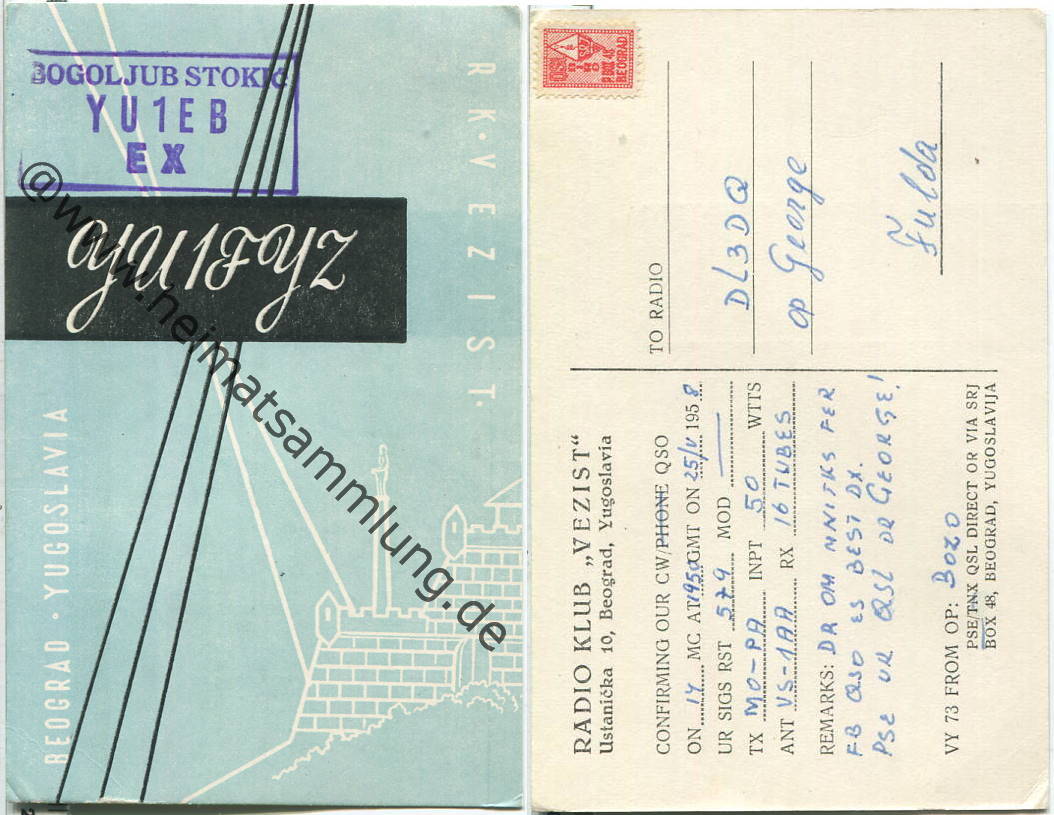 BOGOLJUB STOKIĆ
YU1EB
EX
RK·VEZIST·
BEOGRAD · YUGOSLAVIA
@www.heimatsammlung.de
QSL
BIRO
P. BOX 48
BEOGRAD
RADIO KLUB „VEZIST“
Ustanička 10, Beograd, Yugoslavia
CONFIRMING OUR CW/PHONE QSO
ON 14 MC AT 1950 GMT ON 25/V 1958
UR SIGS RST 579 MOD —
TX MO-PA INPT 50 WTTS
ANT VS-1AA RX 16 TUBES
REMARKS: DR OM MNI TKS FER
FB QSO ES BEST DX.
PSE UR QSL DR GEORGE!
VY 73 FROM OP: BOZO
PSE/TNX QSL DIRECT OR VIA SRJ
BOX 48, BEOGRAD, YUGOSLAVIJA
TO RADIO
DL3DQ
op George
Fulda